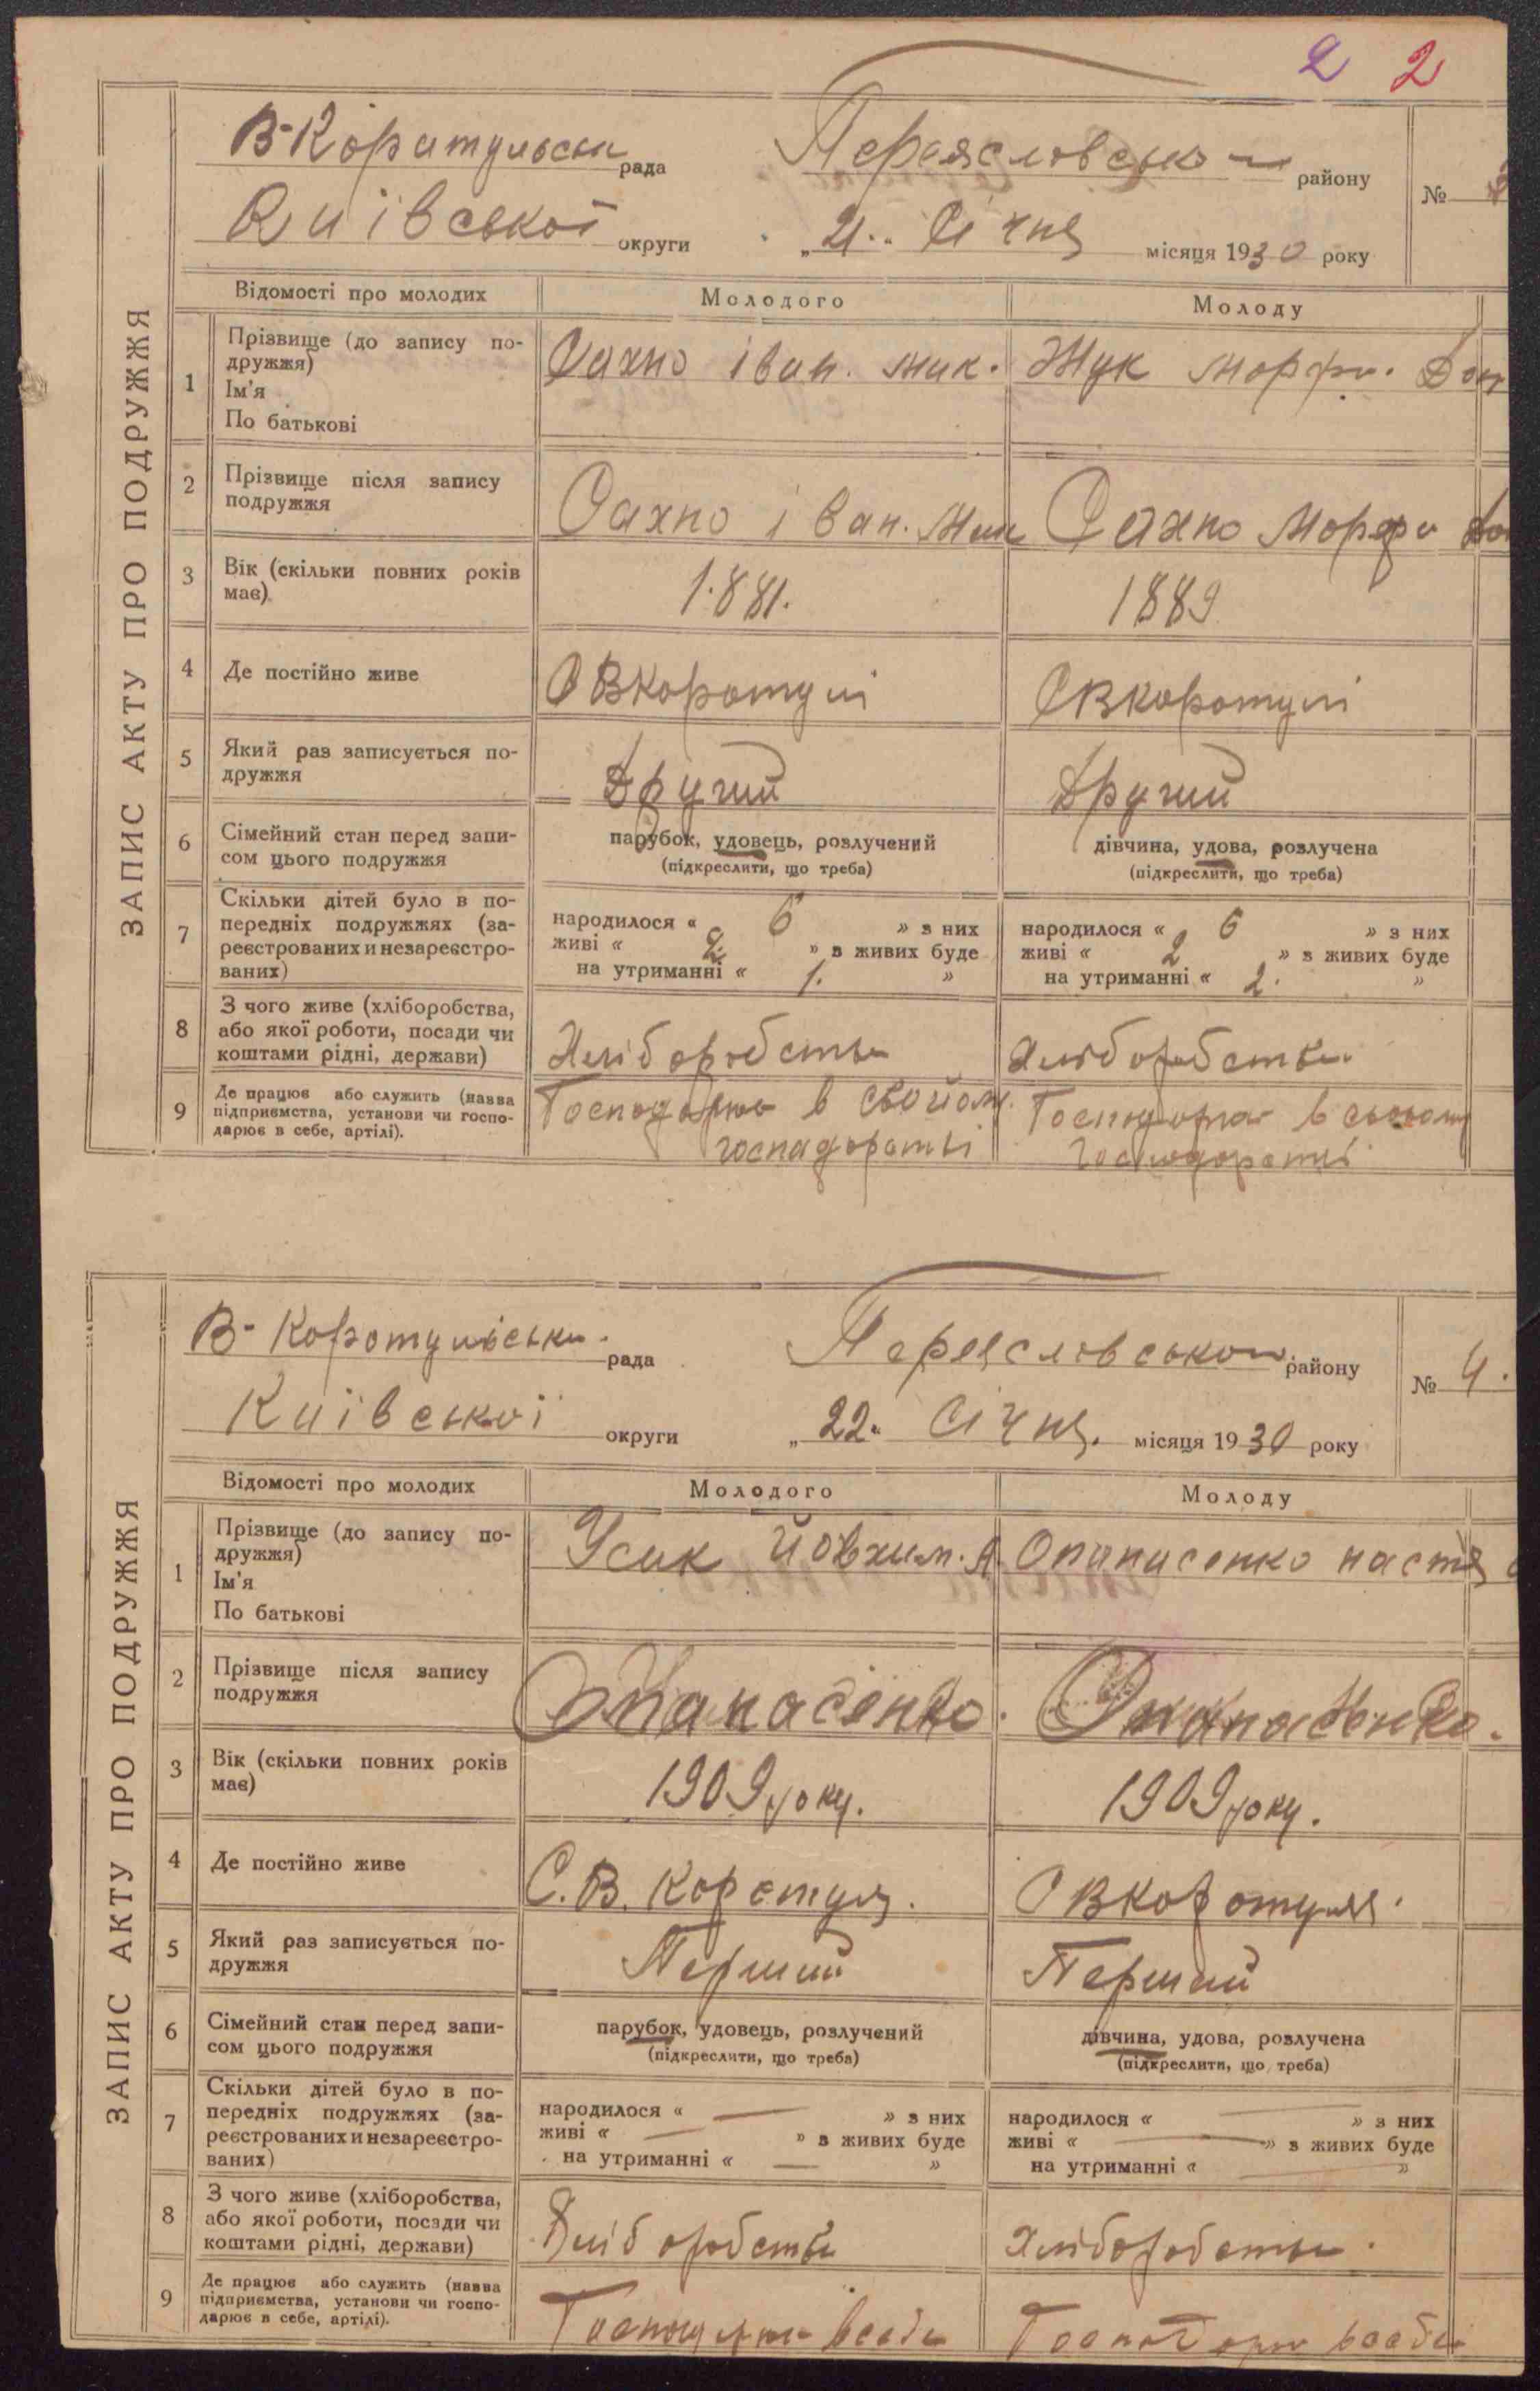 2 2
ЗАПИС АКТУ ПРО ПОДРУЖЖЯ
В-Коратульськ рада Переясловсько району №
Київської округи „21„ Січня місяця 1930 року
Відомості про молодих Молодого Молоду
1 Прізвище (до запису по-
дружжя)
Ім'я
По батькові
Сахно Іван. Мик. Жук Морфи. Дом
2 Прізвище після запису
подружжя
Сахно Іван. Мик Сахно Морфи
3 Вік (скільки повних років
має)
1881. 1889
4 Де постійно живе
С ВКоротулі С ВКоротулі
5 Який раз записується по-
дружжя
Другий Другий
6 Сімейний стан перед запи-
сом цього подружжя
парубок, удовець, розлучений
(підкреслити, що треба)
дівчина, удова, розлучена
(підкреслити, що треба)
7 Скільки дітей було в по-
передніх подружжях (за-
реєстрованих и незареєстро-
ваних)
народилося « 6 » з них
живі « 2 » з живих буде
на утриманні « 1. »
народилося « 6 » з них
живі « 2 » з живих буде
на утриманні « 2. »
8 З чого живе (хліборобства,
або якої роботи, посади чи
коштами рідні, держави)
Хліборобств Хліборобств
9 Де працює або служить (назва
підприємства, установи чи госпо-
дарює в себе, артілі).
Господарює в свойом
господорстві
Господорює в свойому
господорстві
ЗАПИС АКТУ ПРО ПОДРУЖЖЯ
В-Коротульськ рада Переясловськом району № 4.
Київської округи „22„ Січня. місяця 1930 року
Відомості про молодих Молодого Молоду
1 Прізвище (до запису по-
дружжя)
Ім'я
По батькові
Усик Йовхим. А. Опанасенко Настя
2 Прізвище після запису
подружжя
Опанасенко. Опанасенко.
3 Вік (скільки повних років
має)
1909 року. 1909 року.
4 Де постійно живе
С. В. Коротуля. С ВКоротуля.
5 Який раз записується по-
дружжя
Перший Перший
6 Сімейний стан перед запи-
сом цього подружжя
парубок, удовець, розлучений
(підкреслити, що треба)
дівчина, удова, розлучена
(підкреслити, що треба)
7 Скільки дітей було в по-
передніх подружжях (за-
реєстрованих и незареєстро-
ваних)
народилося « — » з них
живі « — » з живих буде
на утриманні « — »
народилося « — » з них
живі « — » з живих буде
на утриманні « — »
8 З чого живе (хліборобства,
або якої роботи, посади чи
коштами рідні, держави)
Хліборобств Хліборобств
9 Де працює або служить (назва
підприємства, установи чи госпо-
дарює в себе, артілі).
Господарює всебе Господорює всебе